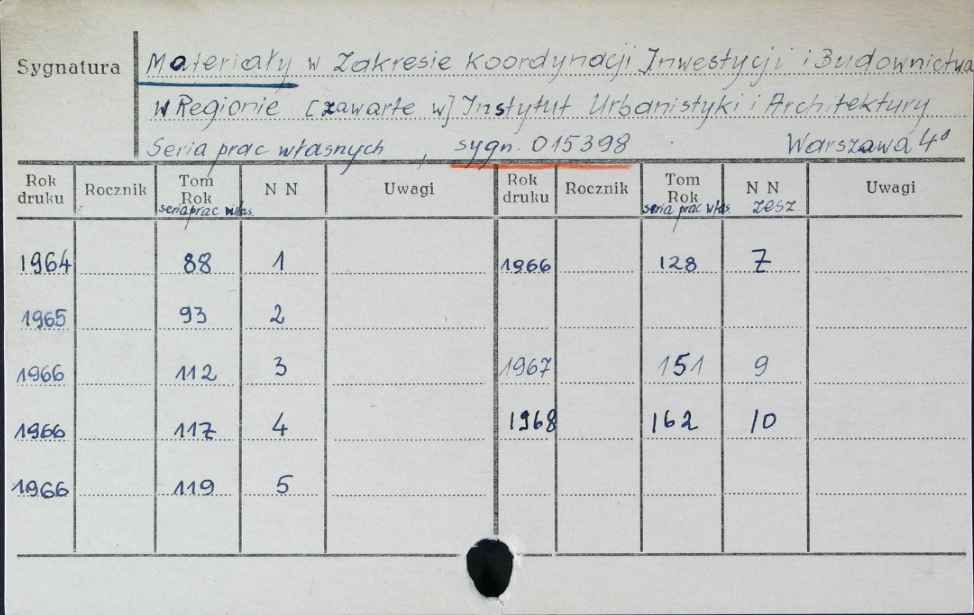 Sygnatura
Materiały w Zakresie Koordynacji Inwestycji i Budownictwa
w Regionie [zawarte w] Instytut Urbanistyki i Architektury
Seria prac własnych , sygn. 015398 Warszawa 4°
Rok druku Rocznik Tom Rok seria prac włas. N N Uwagi Rok druku Rocznik Tom Rok seria prac włas. N N zesz Uwagi
1964 88 1 1966 128 7
1965 93 2
1966 112 3 1967 151 9
1966 117 4 1968 162 10
1966 119 5